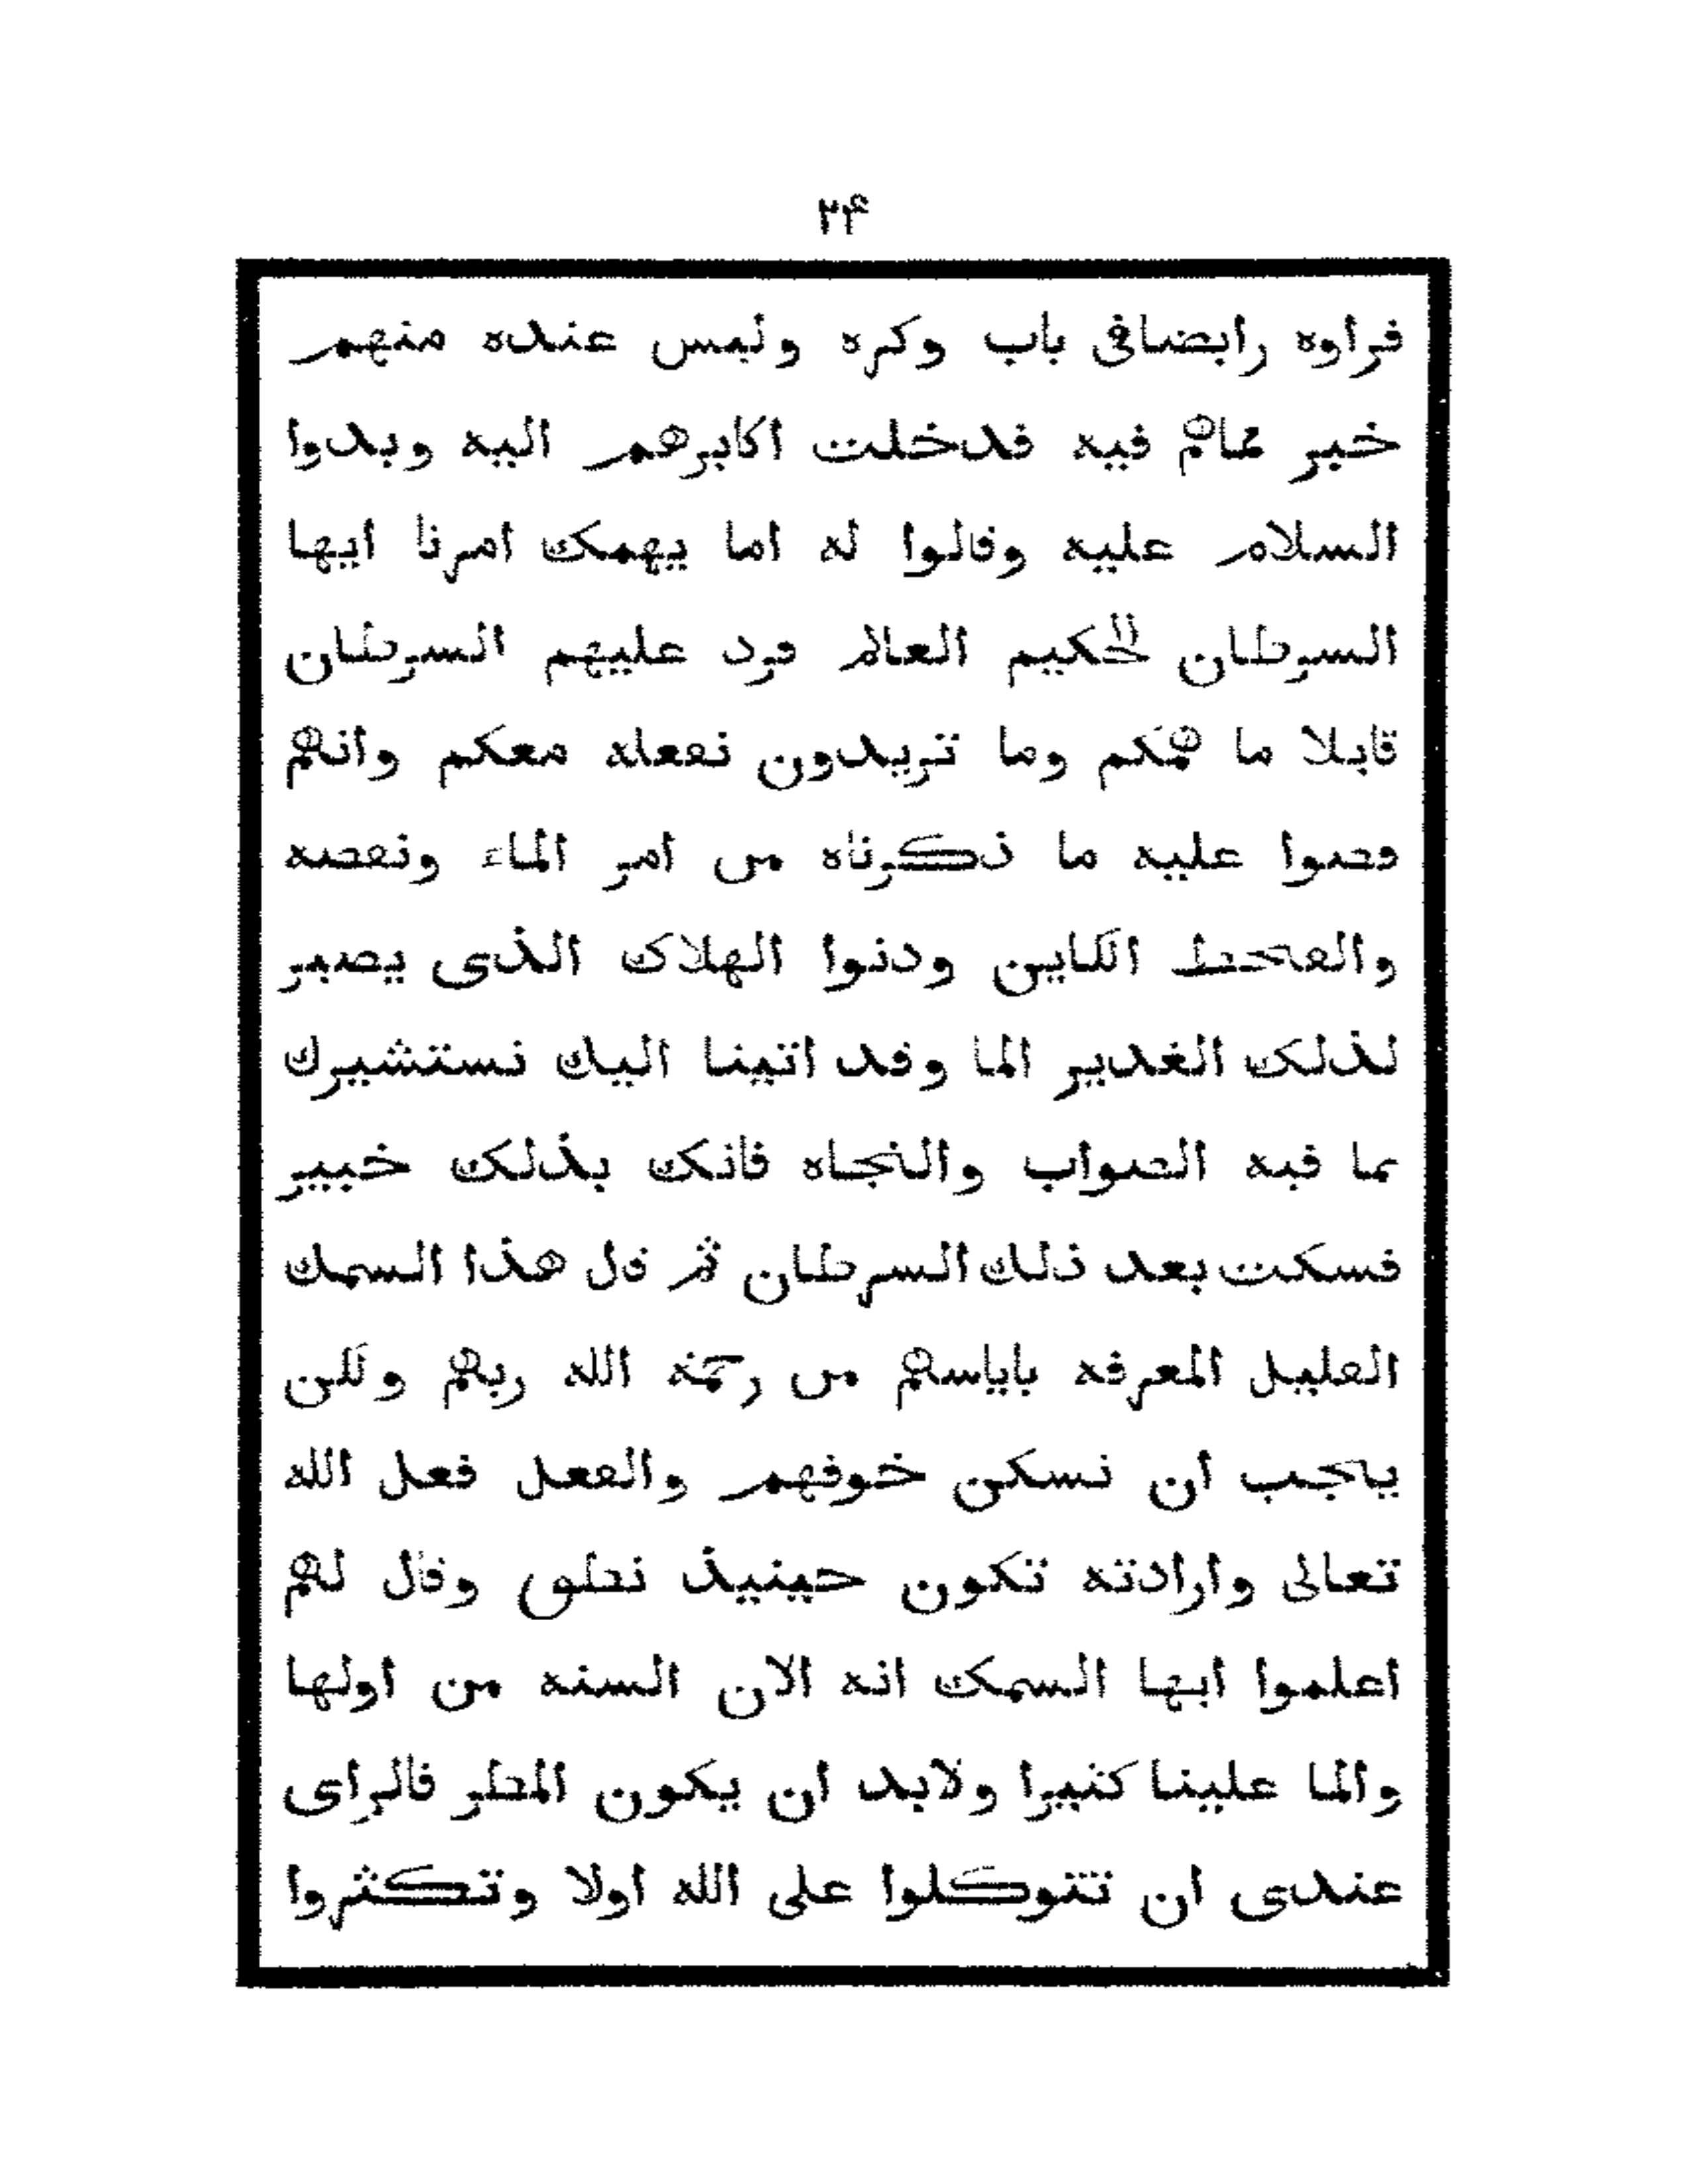 ٢۴
فراوه رابضافى باب وكره وليس عنده منهم
خبر مماهم فيه فدخلت اكابرهم اليه وبدوا
السلام عليه وقالوا له اما يهمك امرنا ايها
السرطان الحكيم العالم فرد عليهم السرطان
قايلا ما همكم وما تريدون نفعله معكم وانهم
قصوا عليه ما ذكرناه من امر الماء ونقصه
والقحط الكاين ودنوا الهلاك الذى يصير
لذلك الغدير الما وقد اتينا اليك نستشيرك
بما فيه الصواب والنجاه فانك بذلك خبير
فسكت بعد ذلك السرطان ثم قل هذا السمك
القليل المعرفه باياسهم من رحمة الله ربهم ولكن
يجب ان نسكن خوفهم والفعل فعل الله
تعالى وارادته تكون حينيذ نطق وقال لهم
اعلموا ايها السمك انه الان السنه من اولها
والما علينا كثيرا ولابد ان يكون المطر فالراى
عندى ان تتوكلوا على الله اولا وتكثروا